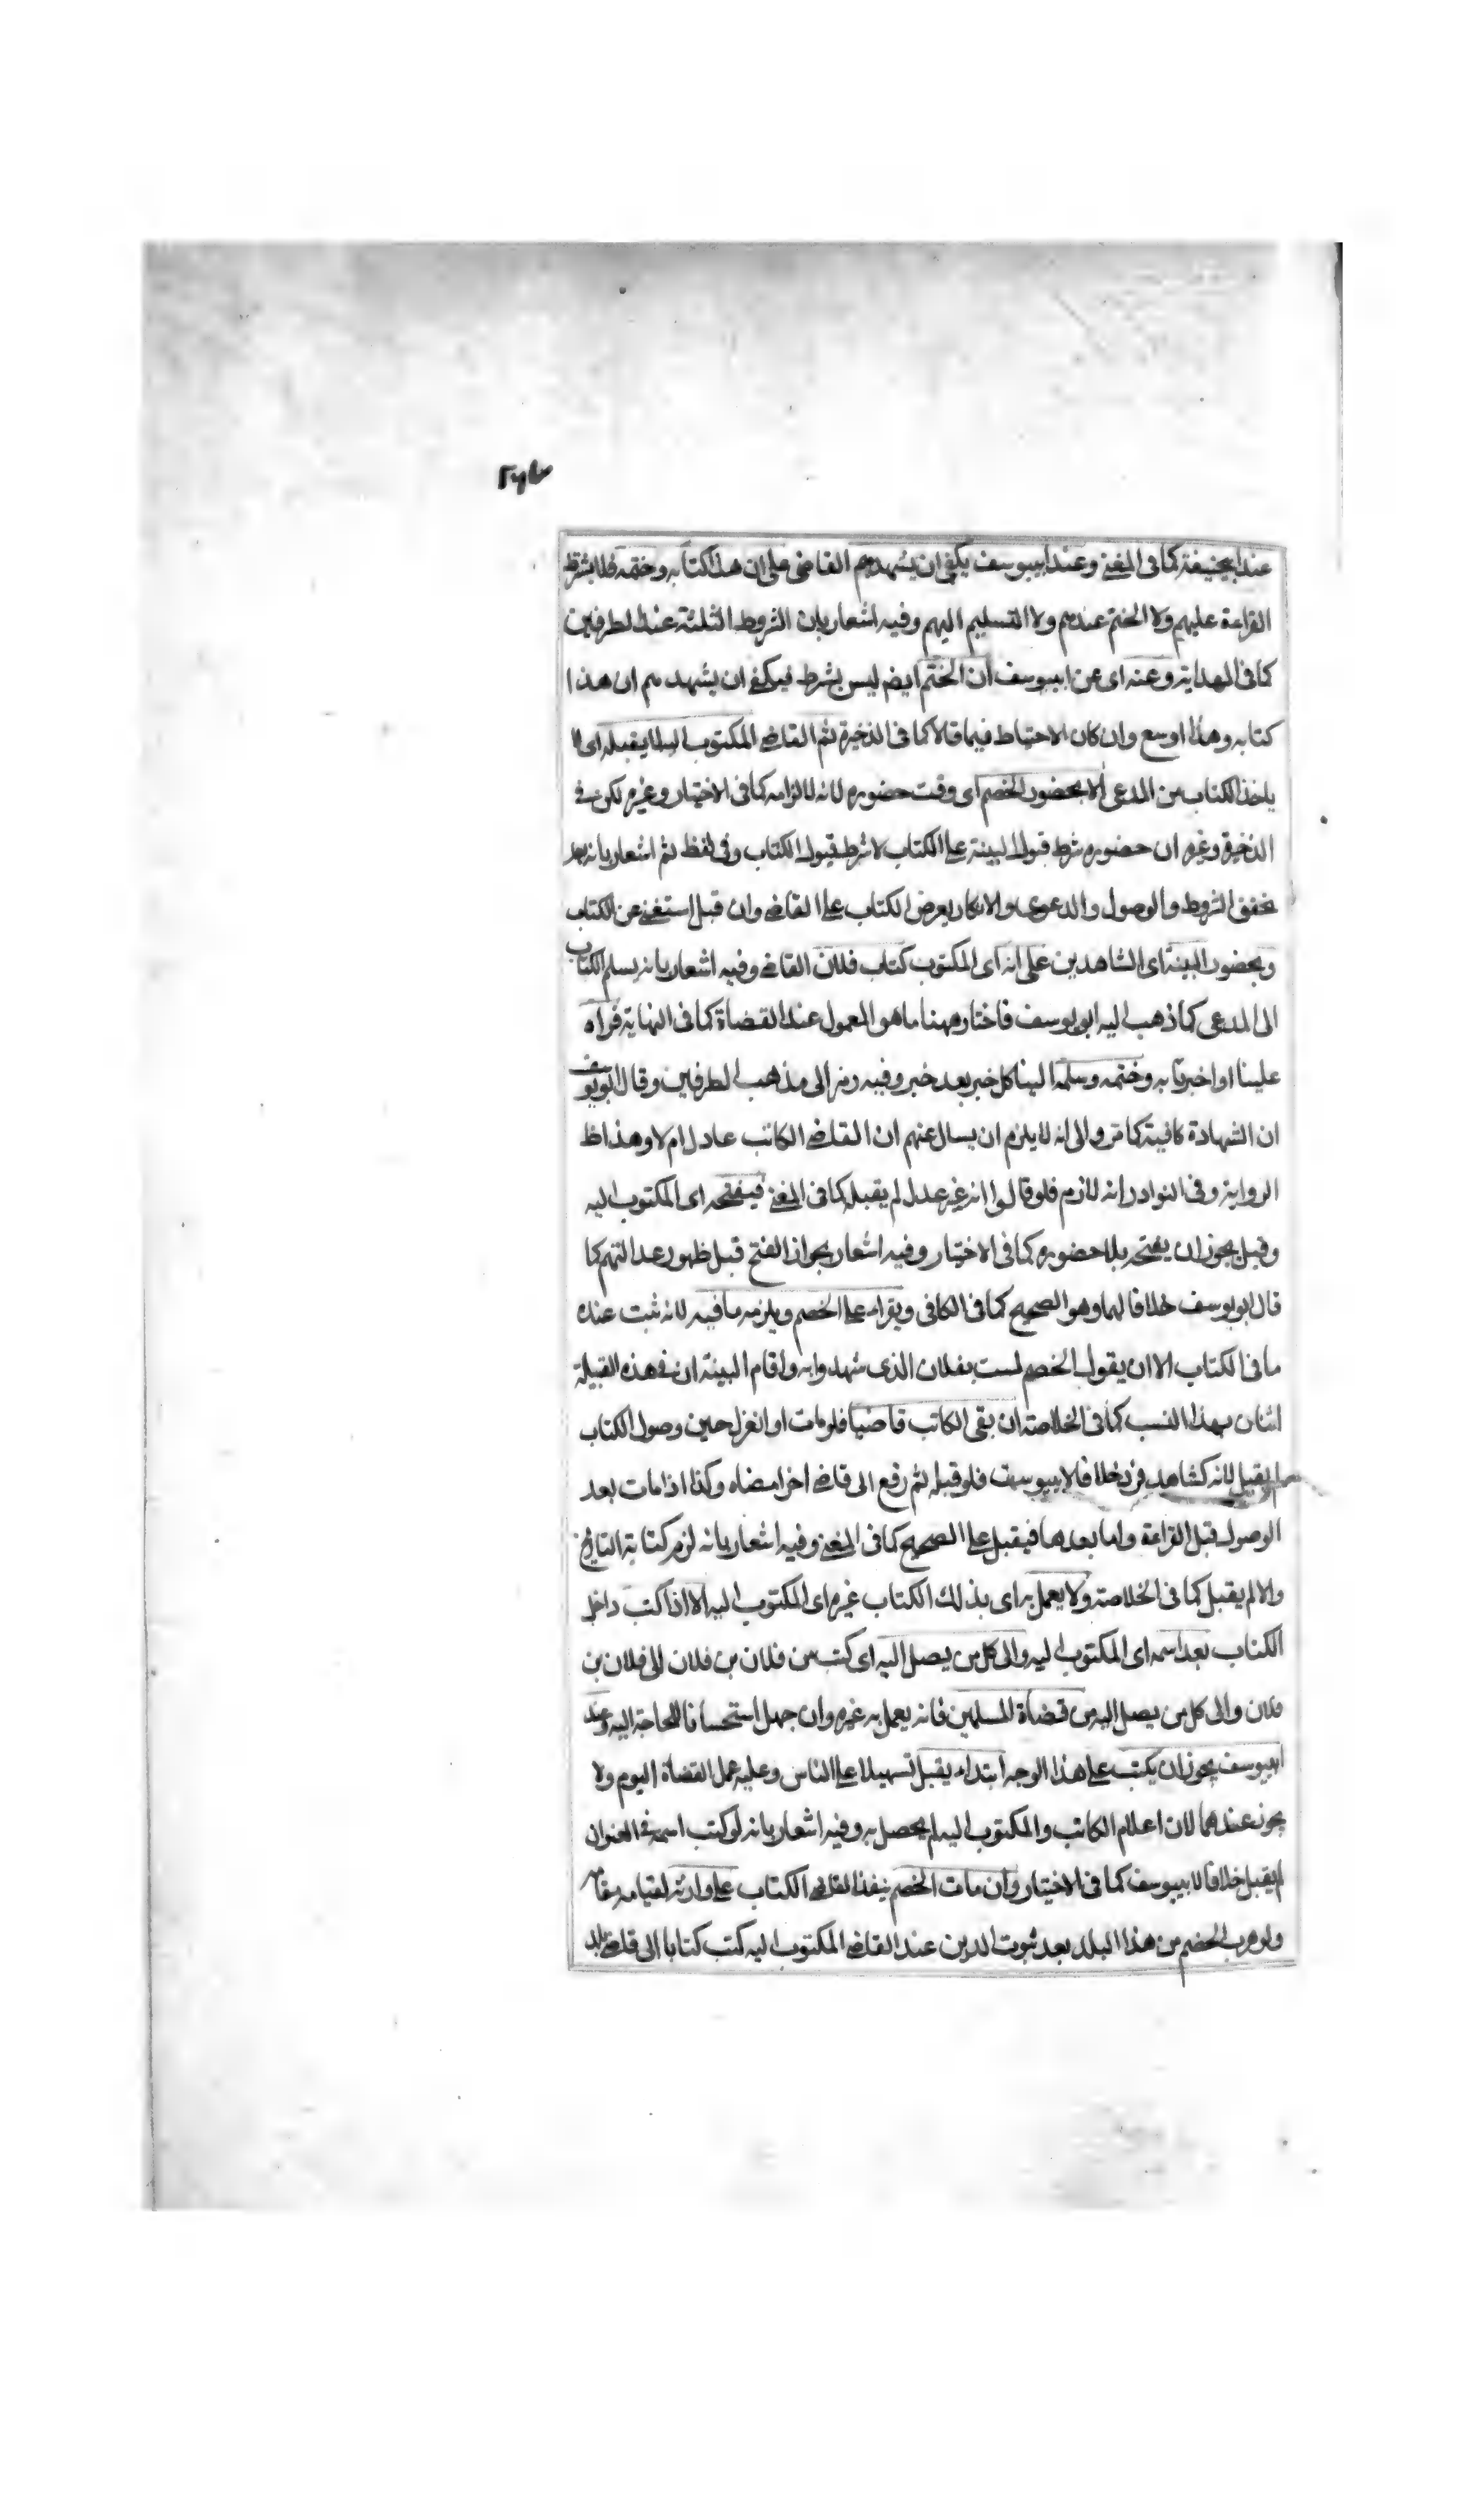 عند ابيحنيفة كما فى المغنى وعند ابيوسف يكفى ان يشهدهم القاضى على ان هذا كتابه وختمه فلا يشترط
القراءة عليهم ولا الختم عندهم ولا التسليم اليهم وفيه اشعار بان الشروط الثلثة عند الطرفين
كما فى الهداية وعنه اى عن ابيوسف ان الختم ايضا ليس بشرط فيكفى ان يشهدهم ان هذا
كتابه وهذا اوسع وان كان الاحتياط فيما قالا كما فى الذخيرة ثم القاضى المكتوب اليه لا يقبله اى لا
ياخذ الكتاب من المدعى الا بحضور الخصم اى وقت حضوره لانه للالزام كما فى الاختيار وغيره لكن فى
الذخيرة وغيره ان حضوره شرط قبول البينة على الكتاب لا شرط قبول الكتاب وفى لفظ ثم اشعار بانه بعد
تحقق الشروط والوصول والدعوى والانكار يعرض الكتاب على القاضى وان قبل استغنى عن الكتاب
وبحضور البينة اى الشاهدين على انه اى المكتوب كتاب فلان القاضى وفيه اشعار بانه يسلم الكتاب
الى المدعى كما ذهب اليه ابو يوسف فاختار ههنا ما هو المعمول عند القضاة كما فى النهاية قراه
علينا او اخبرنا به وختمه وسلمه الينا كل خبر بعد خبر وفيه رمز الى مذهب الطرفين وقال ابو يوسف
ان الشهادة كافية كما مر والى انه لا يلزم ان يسال عنهم ان القاضى الكاتب عادل ام لا وهذا ظ
الرواية وفى النوادر انه لازم فلو قالوا انه غير عدل لم يقبله كما فى المغنى فيفتحه اى المكتوب اليه
وقيل يجوز ان يفتحه بلا حضوره كما فى الاختيار وفيه اشعار بجواز الفتح قبل ظهور عدالتهم كما
قال ابو يوسف خلافا لهما وهو الصحيح كما فى الكافى ويقراه على الخصم ويلزمه ما فيه لانه ثبت عنده
ما فى الكتاب الا ان يقول الخصم لست بفلان الذى شهدوا به واقام البينة ان فى هذه القبيلة
اثنان بهذا النسب كما فى الخلاصة ان بقى الكاتب قاضيا فلو مات او انعزل حين وصول الكتاب
لم يقبل لانه كشاهد فرد خلافا لابيوسف فلو قبله ثم رفع الى قاضى اخر امضاه وكذا اذا مات بعد
الوصول قبل القراءة واما بعدها فيقبل على الصحيح كما فى المغنى وفيه اشعار بانه لزم كتابة التاريخ
والا لم يقبل كما فى الخلاصة ولا يعمل به اى بذلك الكتاب غيره اى المكتوب اليه الا اذا كتب داخل
الكتاب بعد اسمه اى المكتوب اليه والى كل من يصل اليه اى كتب من فلان بن فلان الى فلان بن
فلان والى كل من يصل اليه من قضاة المسلمين فانه يعمل به غيره وان جهل استحسانا للحاجة اليه وعند
ابيوسف يجوز ان يكتب على هذا الوجه ابتداء يقبل تسهيلا على الناس وعليه عمل القضاة اليوم ولا
يجوز عندهما لان اعلام الكاتب والمكتوب اليه لم يحصل به وفيه اشعار بانه لو كتب اسمه فى العنوان
لم يقبل خلافا لابيوسف كما فى الاختيار وان مات الخصم ينفذ القاضى الكتاب على وارثه لقيامه مقامه
ولو هرب الخصم من هذا البلد بعد ثبوت الدين عند القاضى المكتوب اليه كتب كتابا الى قاضى بلد